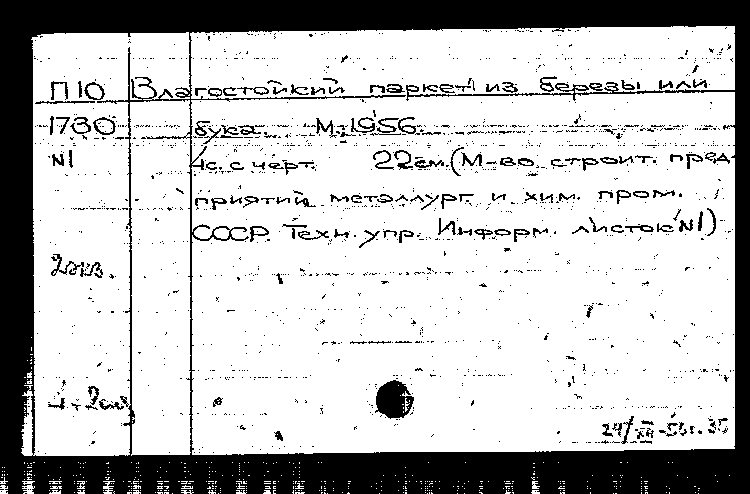 П10 Влагостойкий паркет из березы или
1730 бука. М, 1956.
N1 4с. с черт. 22см. (М-во строит. пред-
приятий металлург. и хим. пром.
СССР. Техн. упр. Информ. листок N1)
2экз.
24/XII-56г. 35